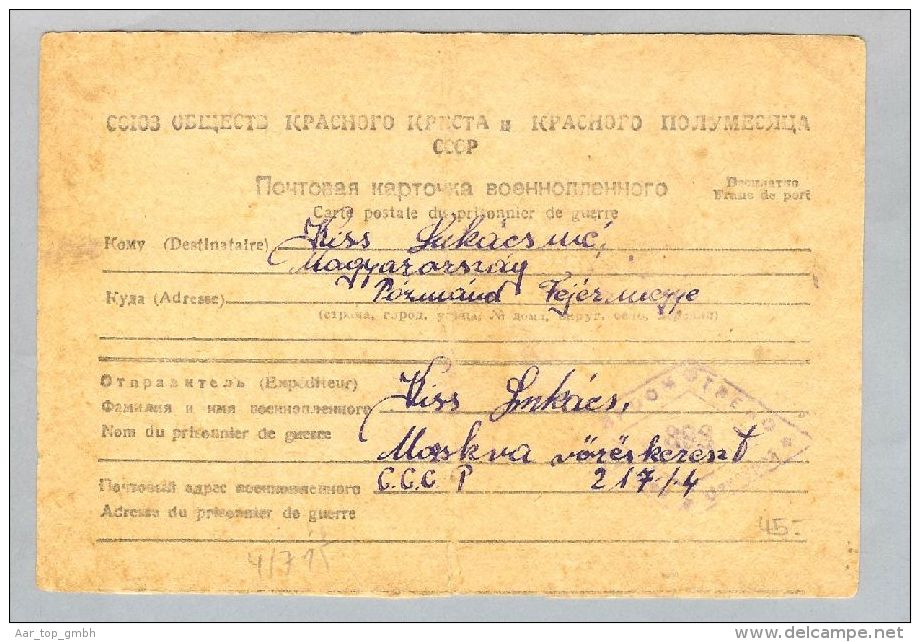 СОЮЗ ОБЩЕСТВ КРАСНОГО КРЕСТА и КРАСНОГО ПОЛУМЕСЯЦА
СССР
Почтовая карточка военнопленного
Бесплатно
Franc de port
Carte postale du prisonnier de guerre
Кому (Destinataire) Kiss Lukácsné,
Magyarország
Куда (Adresse) Pózmánd Fejérmegye
(страна, город, улица, № дома, округ, село, деревня)
Отправитель (Expéditeur)
Фамилия и имя военнопленного
Kiss Lukács,
Nom du prisonnier de guerre
Moskva vöröskereszt
Почтовый адрес военнопленного C.C.C P 217/4
Adresse du prisonnier de guerre
45.-
Aar_top_gmbh
delcampe.net